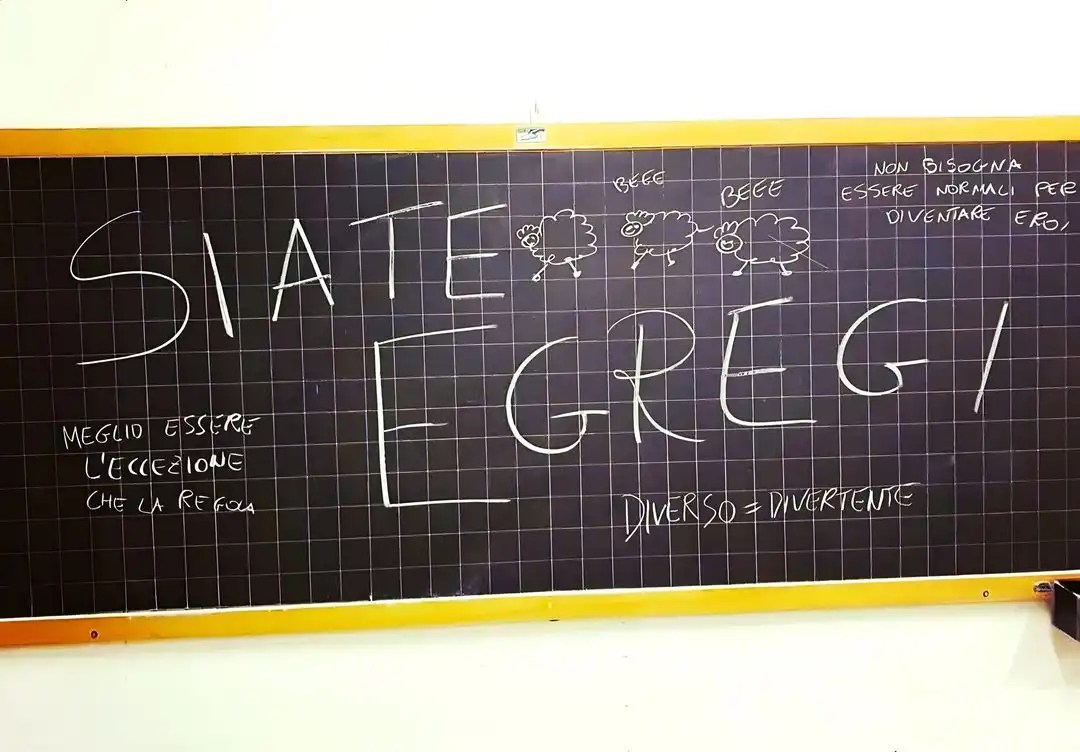 BEEE
BEEE
NON BISOGNA
ESSERE NORMALI PER
DIVENTARE EROI
SIATE
EGREGI
MEGLIO ESSERE
L'ECCEZIONE
CHE LA REGOLA
DIVERSO = DIVERTENTE